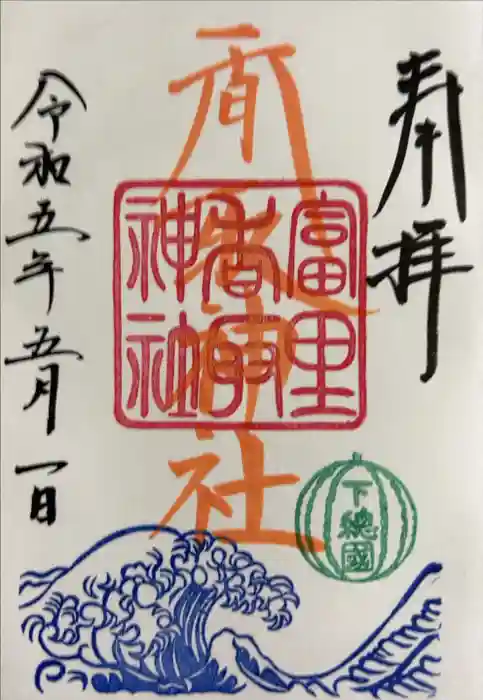 奉拝
香取神社
富里
香取
神社
下總國
令和五年五月一日